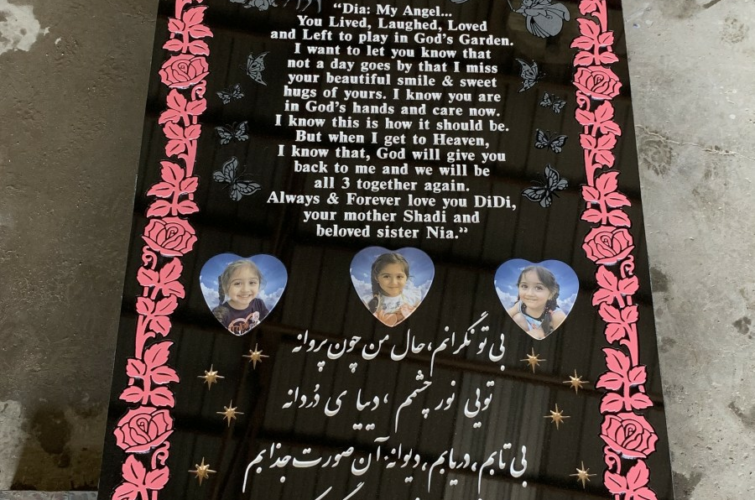 “Dia: My Angel...
You Lived, Laughed, Loved
and Left to play in God's Garden.
I want to let you know that
not a day goes by that I miss
your beautiful smile & sweet
hugs of yours. I know you are
in God's hands and care now.
I know this is how it should be.
But when I get to Heaven,
I know that, God will give you
back to me and we will be
all 3 together again.
Always & Forever love you DiDi,
your mother Shadi and
beloved sister Nia.”
بی تو نگرانم، حال من چون پروانه
تویی نور چشمم، دیبا ی دُردانه
بی تابم، دریابم، دیوانهٔ آن صورت جذابم